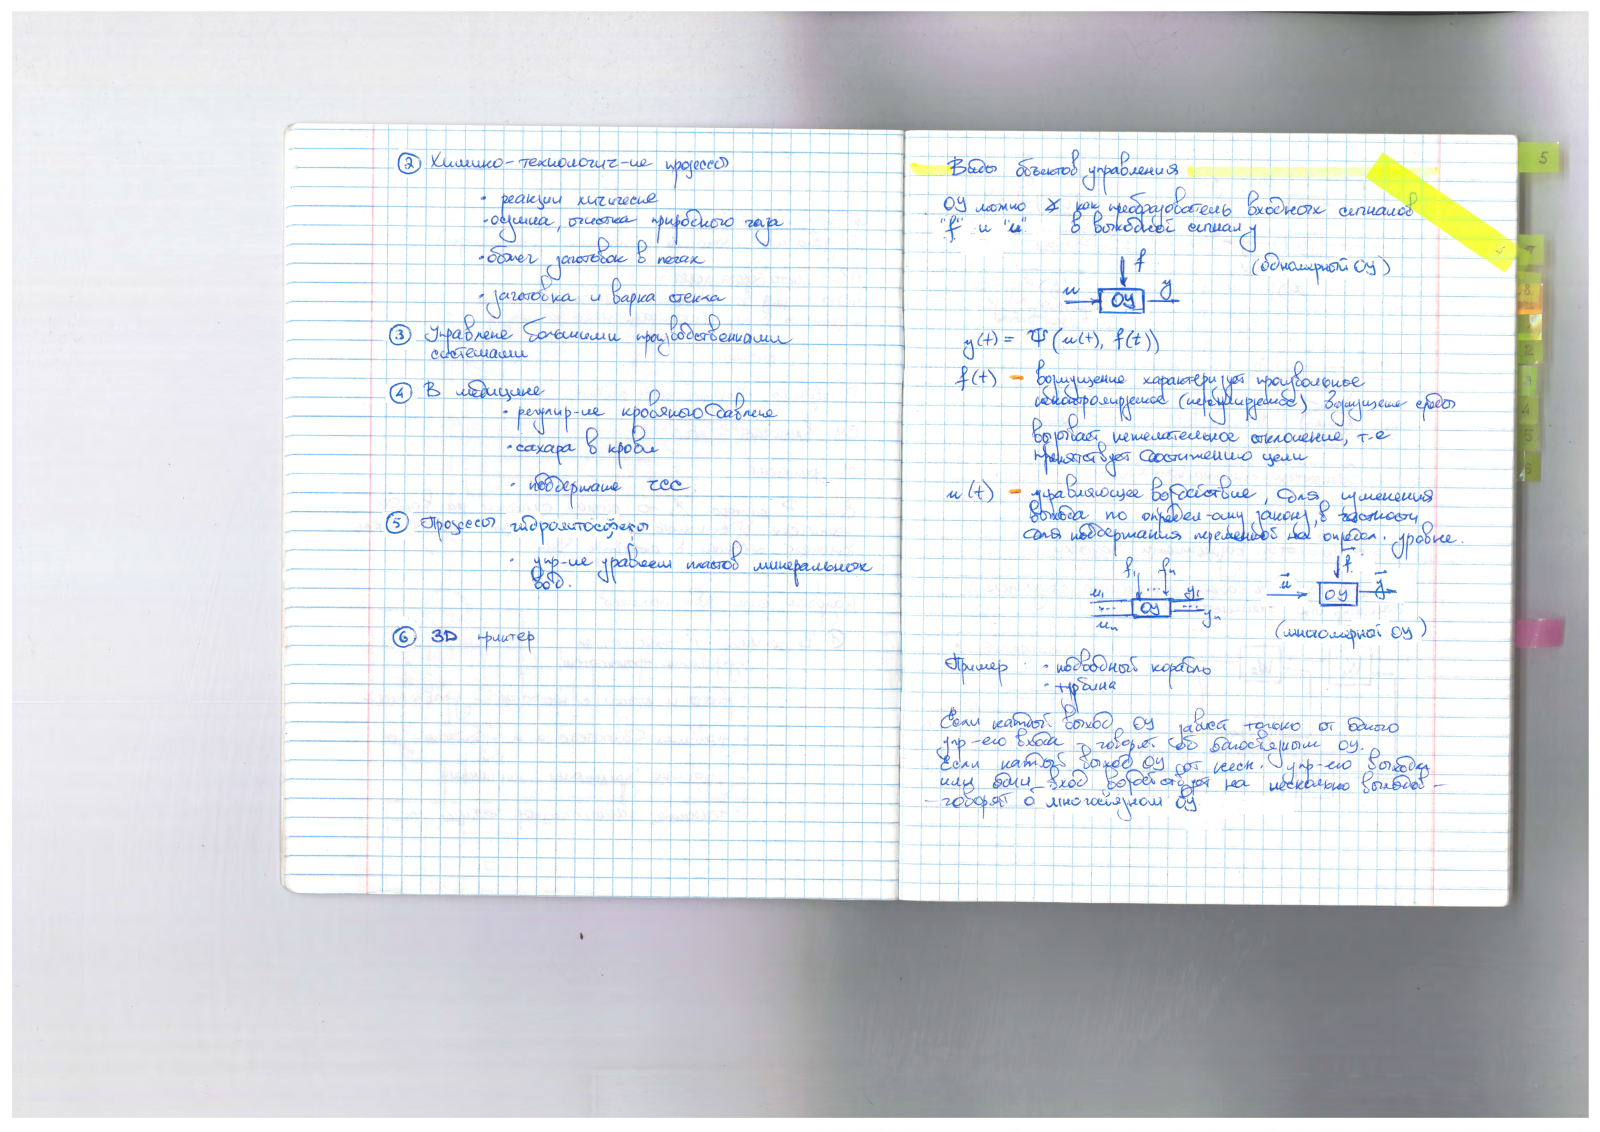 ② Химико-технологич-ие процессы
· реакции химические
· осушка, очистка природного газа
· обжег заготовок в печах
· заготовка и варка стекла
③ Управлене большими производственными
системами
④ В медицине
· регулир-ие кровяного давлене
· сахара в крове
· поддержание ЧСС
⑤ Процессы гидролитосферы
· упр-ие уравнем пластов минеральных
вод.
⑥ 3D принтер
Виды объектов управления
ОУ можно как преобразователь входных сигналов
"f" и "u" в выходной сигнал y
f
(одномерной ОУ)
u ОУ y
y(t) = Ψ(u(t), f(t))
f(t) – возмущение характеризует произвольное
неконтролируемое (нерегулируемое) возмущение среды
вызывает нежелательное отклонение, т-е
препятствует достижению цели
u(t) – управляющее воздействие, для изменения
выхода по определ-ому закону, в частности
для поддержания переменной на определ. уровне.
f₁ fₙ f
u₁ ... ОУ ... y₁ u ОУ y
uₙ yₙ
(многомерной ОУ)
Пример: · подводный корабль
· турбина
Если каждый выход ОУ зависит только от одного
упр-его входа - говорят об односвязным ОУ.
Если каждый выход ОУ от неск. упр-его выходов
или один вход воздействует на несколько выходов -
- говорят о многосвязном ОУ
5
7
8
2
3
4
5
6